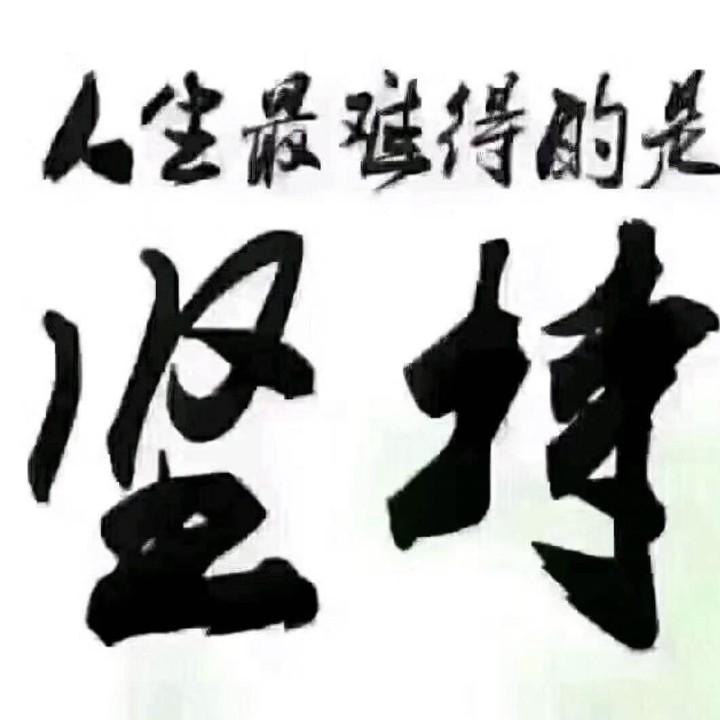 人生最难得的是
坚持